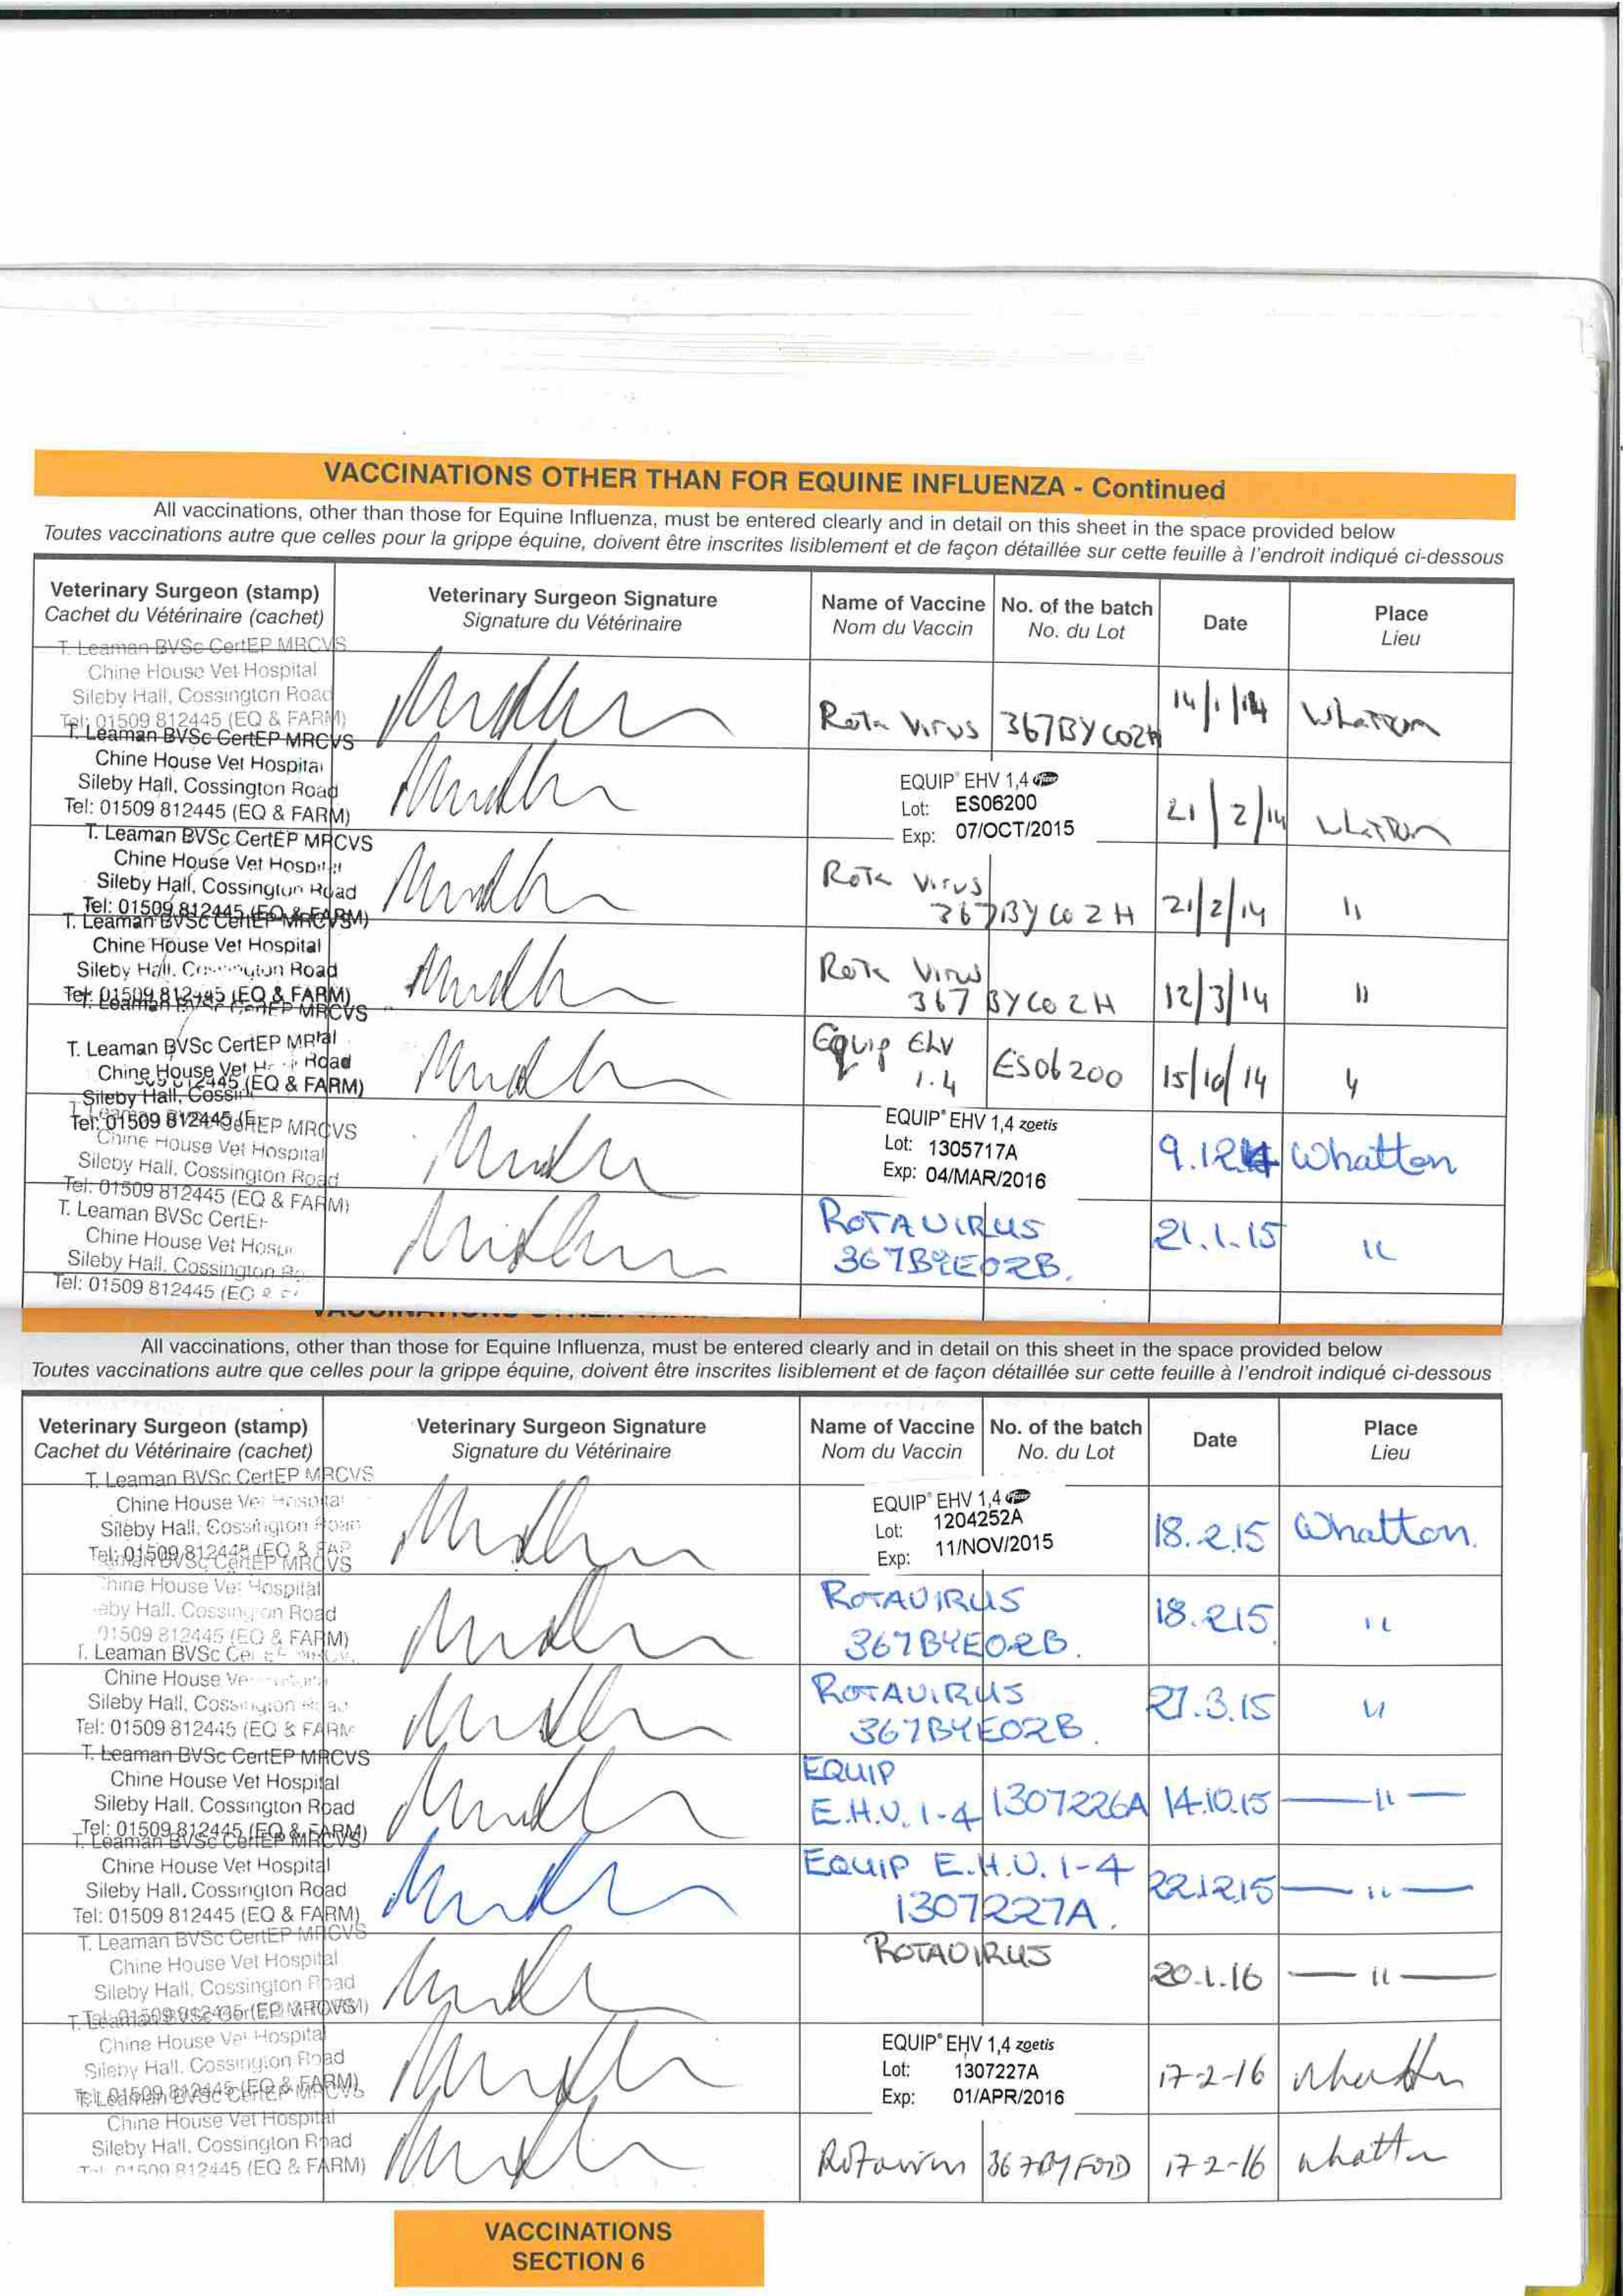 VACCINATIONS OTHER THAN FOR EQUINE INFLUENZA - Continued
All vaccinations, other than those for Equine Influenza, must be entered clearly and in detail on this sheet in the space provided below
Toutes vaccinations autre que celles pour la grippe équine, doivent être inscrites lisiblement et de façon détaillée sur cette feuille à l'endroit indiqué ci-dessous
Veterinary Surgeon (stamp) Veterinary Surgeon Signature Name of Vaccine No. of the batch Date Place
Cachet du Vétérinaire (cachet) Signature du Vétérinaire Nom du Vaccin No. du Lot Lieu
T. Leaman BVSc CertEP MRCVS
Chine House Vet Hospital
Sileby Hall, Cossington Road
Tel: 01509 812445 (EQ & FARM)
Rota Virus 367BYC02H 14/1/14 Whatton
T. Leaman BVSc CertEP MRCVS
Chine House Vet Hospital
Sileby Hall, Cossington Road
Tel: 01509 812445 (EQ & FARM)
EQUIP EHV 1,4 Pfizer
Lot: ES06200
Exp: 07/OCT/2015
21/2/14 Whatton
T. Leaman BVSc CertEP MRCVS
Chine House Vet Hospital
Sileby Hall, Cossington Road
Tel: 01509 812445 (EQ & FARM)
Rota Virus
367BYC02H 21/2/14 "
T. Leaman BVSc CertEP MRCVS
Chine House Vet Hospital
Sileby Hall, Cossington Road
Tel: 01509 812445 (EQ & FARM)
Rota Virus
367BYC02H 12/3/14 "
T. Leaman BVSc CertEP
Chine House Vet Road
Sileby Hall, (EQ & FARM)
Tel: 01509 812445
Equip EHV
1.4 ES06200 15/10/14 "
MRCVS
Chine House Vet Hospital
Sileby Hall, Cossington Road
Tel: 01509 812445 (EQ & FARM)
EQUIP® EHV 1,4 zoetis
Lot: 1305717A
Exp: 04/MAR/2016
9.12.14 Whatton
T. Leaman BVSc
Chine House Vet
Sileby Hall, Cossington
Tel: 01509 812445 (EQ &
ROTAVIRUS
367BYE02B. 21.1.15 "
All vaccinations, other than those for Equine Influenza, must be entered clearly and in detail on this sheet in the space provided below
Toutes vaccinations autre que celles pour la grippe équine, doivent être inscrites lisiblement et de façon détaillée sur cette feuille à l'endroit indiqué ci-dessous
Veterinary Surgeon (stamp) Veterinary Surgeon Signature Name of Vaccine No. of the batch Date Place
Cachet du Vétérinaire (cachet) Signature du Vétérinaire Nom du Vaccin No. du Lot Lieu
T. Leaman BVSc CertEP MRCVS
Chine House Vet Hospital
Sileby Hall, Cossington Road
Tel: 01509
EQUIP® EHV 1,4 Pfizer
Lot: 1204252A
Exp: 11/NOV/2015
18.2.15 Whatton.
BVSc CertEP MRCVS
Chine House Vet Hospital
Hall, Cossington Road
01509 812445 (EQ & FARM)
ROTAVIRUS
367BYE02B. 18.2.15 "
T. Leaman BVSc
Chine House
Sileby Hall, Cossington
Tel: 01509 812445 (EQ & FARM
ROTAVIRUS
367BYE02B. 27.3.15 "
T. Leaman BVSc CertEP MRCVS
Chine House Vet Hospital
Sileby Hall, Cossington Road
Tel: 01509 812445 (EQ & FARM)
EQUIP
E.H.V. 1-4 1307226A 14.10.15 — " —
T. Leaman BVSc CertEP MRCVS
Chine House Vet Hospital
Sileby Hall, Cossington Road
Tel: 01509 812445 (EQ & FARM)
EQUIP E.H.V. 1-4
1307227A. 22.12.15 — " —
T. Leaman BVSc CertEP MRCVS
Chine House Vet Hospital
Sileby Hall, Cossington Road
Tel: 01509 812445
ROTAVIRUS
20.1.16 — " —
T. Leaman
Chine House Vet Hospital
Sileby Hall, Cossington Road
(EQ & FARM)
EQUIP® EHV 1,4 zoetis
Lot: 1307227A
Exp: 01/APR/2016
17-2-16 Whatton
T. Leaman BVSc CertEP MRCVS
Chine House Vet Hospital
Sileby Hall, Cossington Road
01509 812445 (EQ & FARM)
Rotavirus 17-2-16 Whatton
VACCINATIONS
SECTION 6